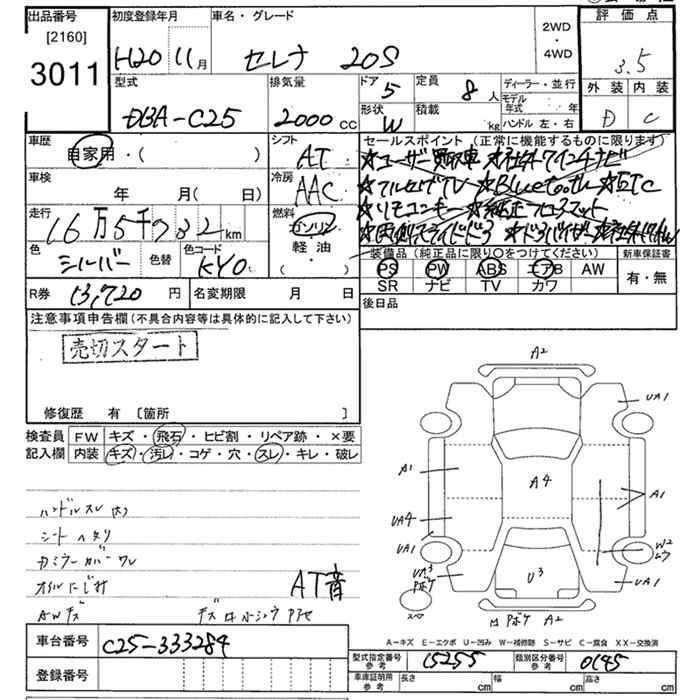 出品番号 初度登録年月 車名・グレード 2WD ・ 4WD 評価点
[2160]
3011
H20 11月 セレナ 20S 3.5
外装 内装
D C
型式 排気量 ドア 5 定員 8人 ディーラー・並行
モデル年式 年
DBA-C25 2000cc 形状 W 積載 kg ハンドル 左・右
車歴 シフト セールスポイント (正常に機能するものに限ります)
自家用・( ) AT ★ユーザー買取車 ★社外7インチナビ
車検 冷房 ★フルセグTV ★Bluetooth ★ETC
年 月( 日) AAC
走行 燃料 ★リモコンキー ★純正フロアマット
16万5千732km ガソリン
軽油
・( )
★両側スライドドア ★ドアバイザー ★社外AW
色 シルバー 色替 色コード KY0
装備品 (純正品に限り○をつけてください) 新車保証書
PS PW ABS エアB AW 有・無
SR ナビ TV カワ
R券 13,720円 名変期限 月 日 後日品
注意事項申告欄(不具合内容等は具体的に記入して下さい)
売切スタート
修復歴 有 [箇所 ]
検査員 FW キズ・飛石・ヒビ割・リペア跡・×要
記入欄 内装 キズ・汚レ・コゲ・穴・スレ・キレ・破レ
ハンドルスレ
シートヘタリ
オイルにじみ AT音
AWキズ
A2
UA1
A1 A4 A1
UA4
UA1 W2
UA3 ボケ U3 UA1
スペア
ボケ A2
A-キズ E-エクボ U-凹み W-補修跡 S-サビ C-腐食 XX-交換済
車台番号 C25-333284
型式指定番号 参考 15255 類別区分番号 参考 0145
登録番号 車庫証明用 参考 長さ cm 幅 cm 高さ cm